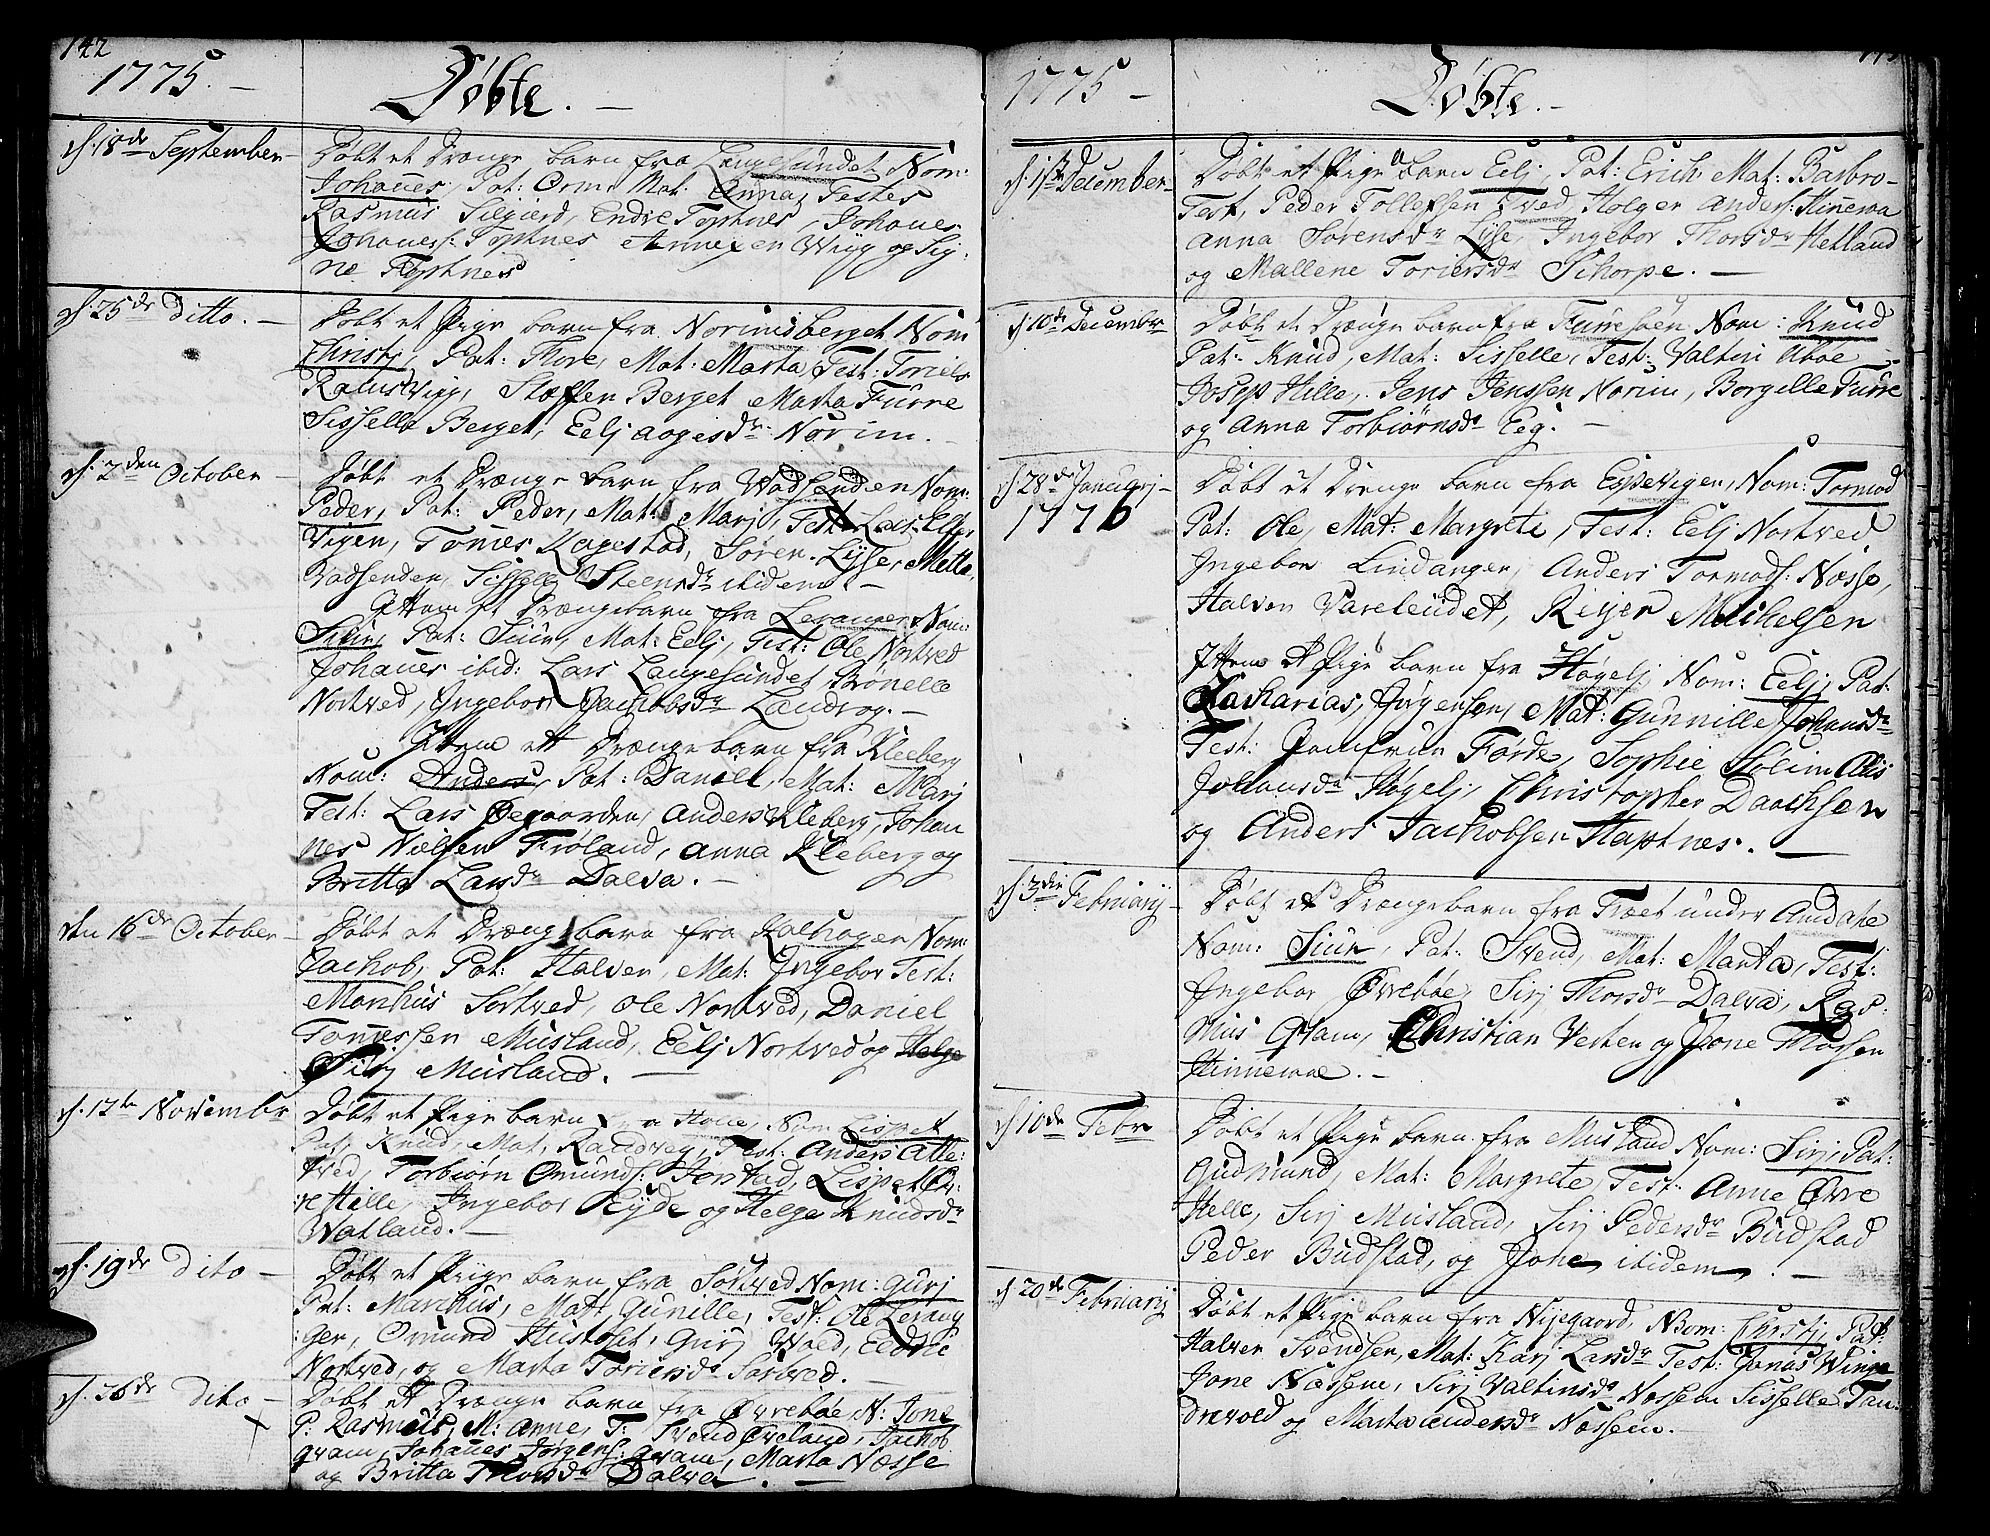 142
1775. –
Döbte. –
d. 18de September –
Döbt et Drænge barn fra Langesundet Nom:
Johanes, Pat: Orm. Mat: Anna, Testes
Rasmus Silgierd, Endre Toftnes, Johanes
Johaness: Toftnes og Sig-
ne Toftnes
d. 25de ditto. –
Döbt et Pige barn fra Norimsberget Nom
Christj, Pat: Thore, Mat: Marta, Test: Toriels
Steffen Berget Marta Furre
Sisselle Berget, Eelj aagesdr: Norim. –
d. 2den October –
Döbt et Drænge barn fra Vadsenden Nom:
Peder, Pat: Peder, Mat: Marj, Test: Lars
Vigen, Tönnes Kagestad, Sören Lysse, Mette
Vadsenden, Sisselle Steensdr ibidem –
Ittem et Drængebarn fra Leranger Nom:
Siur, Pat: Siur, Mat: Eelj, Test: Ole Nortved
Johanes ibid: Lars Langesundet Brönelle
Nortved, Ingebor Jachobsdr Landrog. –
Ittem ett Drænge barn fra Kleeberg
Nom: Anders, Pat: Daniel, Mat: Marj
Test: Lars Öegaarden, Anders Kleberg, Johan
nes Nielsen Fröland, Anna Kleberg og
Britte Larsdr Dalva. –
den 16de October –
Döbt et Drænge barn fra Kalhagen Nom:
Jachob, Pat: Halver, Mat: Ingebor Test:
Marchus Sörtved, Ole Nortved, Daniel
Tönnessen Musland, Eelj Nortved og Helge
Sirj Musland. –
d. 12te Novembr
Döbt et Pige barn fra Nom Lispet
Pat, Knud, Mat, Randveg, Test: Anders Atle-
tved, Torbiörn Omunds: Jerstad, Lispet Öv-
re Hille, Ingebor Eyde og Helge Knudsdr
Watland. –
d. 19de dito –
Döbt et Piige barn fra Sörtved Nom: Gurj
Pat: Marchus, Mat: Gunille, Test: Ole Lerang
ger, Omund Hustoft, Gurj Woed, Eldrie
Nortved, og Marta Toriersdr Sörtved. –
d. 26de dito –
Döbt et Drænge barn fra Övreböe, N: Jone
P: Rasmus, M: Anne, T: Svend Öveland, Jachob
qvam, Johanes Jörgens: qvam, Marta Næsse
og Britta Thorsdr Dalva. –
1775 –
Döbte. –
d. 1ste December –
Döbt et Pige barn Eelj, Pat: Erich, Mat: Barbro –
Test, Peder Tollefsen Tved, Holger Anders: Hinnewa
Anna Sörensdr Lysse, Ingebor Thorsdr Hetland
og Mallene Toriersdr Schorpe. –
d. 10de Decembr
Döbt et Drænge barn fra Furreböen Nom: Knud
Pat: Knud, Mat: Sisselle, Test: Valtin Aböe –
Josep Hille, Jens Jenssen Norim, Borgille Furre
og Anna Torbiörnsdr Eeg. –
d. 28de Januarj –
1776
Döbt et Drenge barn fra Espevigen, Nom: Tormod
Pat: Ole, Mat: Margrete, Test: Eelj Nortved
Ingebor Lindanger, Anders Tormods: Næsse,
Halven Vareleudet, Reyer Michelsen
Ittem et Pige barn fra Högelj Nom: Eelj, Pat:
Zacharias, Jörgensen, Mat: Gunnille Johansdr
Test: Jomfrun Förde, Sophie Holim Alis
Johansdr Högelj, Christopher Daachsen
og Anders Jachobsen Haptnes. –
d. 3die Februarij –
Döbt et Drængebarn fra Træet under Aandahe
Nom: Siur, Pat: Svend, Mat: Marta, Test:
Ingebor Övreböe, Sirj Thorsdr Dalva, Ras-
mus Qvam, Christian Vesten og Jone Thorsen
Hinnewae. –
d. 10de Febr
Döbt et Pige barn fra Musland Nom: Sirj, Pat:
Gudmund, Mat: Margrete, Test: Anne Övre
Helle, Sirj Musland, Sirj Pedersdr Budstad
Peder Budstad, og Jone ibidem. –
d. 20de Februarij
Döbt et Pige barn fra Nijegaard, Nom: Christj, Pat:
Halver Svendsen, Mat: Karj Larsdr Test: Jonas Winge
Jone Nassem, Sirj Valtinsdr Nossem Sisselle Tan-
drevold og Marta andersdr Nassem. –